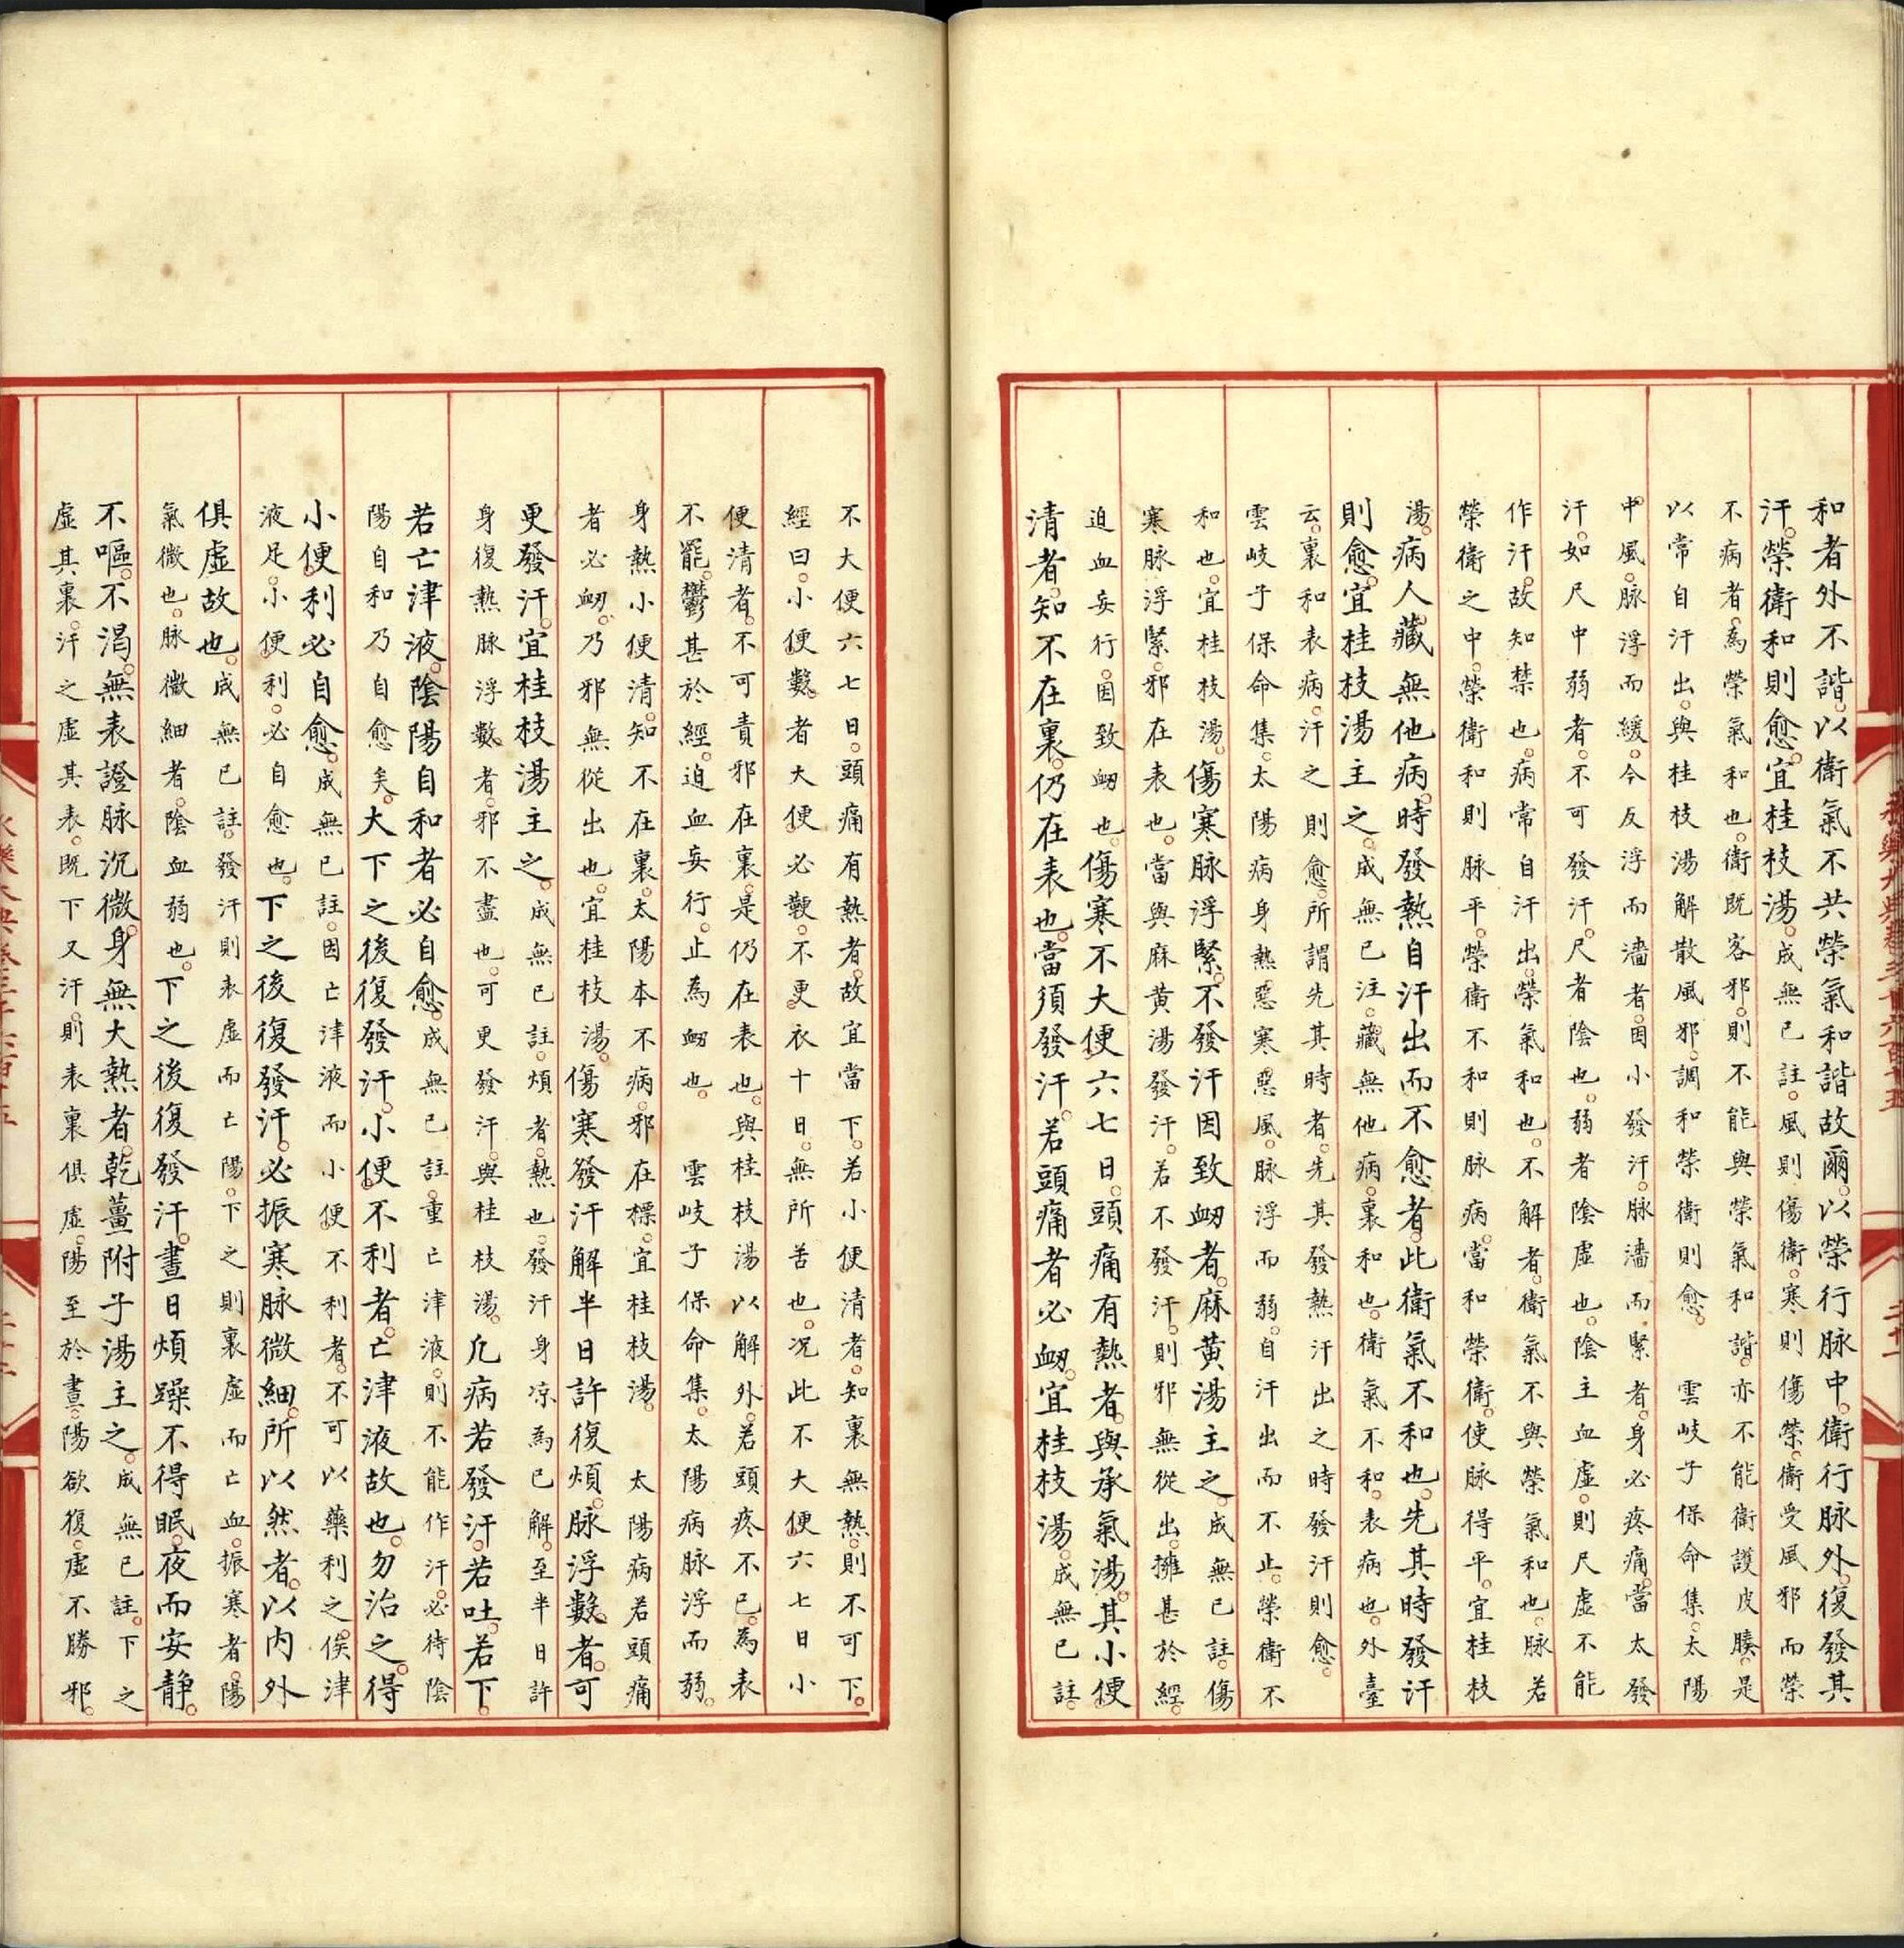 和者外不諧以衛氣不共榮氣和諧故爾以榮行脉中衛行脉外復發其
汗榮衛和則愈宜桂枝湯成無已註風則傷衛寒則傷榮衛受風邪而榮
不病者為榮氣和也衛既客邪則不能與榮氣和諧亦不能衛護皮腠是
以常自汗出與桂枝湯解散風邪調和榮衛則愈 雲岐子保命集太陽
中風脉浮而緩今反浮而濇者因小發汗脉濇而緊者身必疼痛當太發
汗如尺中弱者不可發汗尺者陰也弱者陰虛也陰主血虛則尺虛不能
作汗故知禁也病常自汗出榮氣和也不解者衛氣不與榮氣和也脉若
榮衛之中榮衛和則脉平榮衛不和則脉病當和榮衛使脉得平宜桂枝
湯病人藏無他病時發熱自汗出而不愈者此衛氣不和也先其時發汗
則愈宜桂枝湯主之成無已注藏無他病裏和也衛氣不和表病也外臺
云裏和表病汗之則愈所謂先其時者先其發熱汗出之時發汗則愈
雲岐子保命集太陽病身熱惡寒惡風脉浮而弱自汗出而不止榮衛不
和也宜桂枝湯傷寒脉浮緊不發汗因致衂者麻黄湯主之成無已註傷
寒脉浮緊邪在表也當與麻黄湯發汗若不發汗則邪無從出擁甚於經
迫血妄行因致衂也傷寒不大便六七日頭痛有熱者與承氣湯其小便
清者知不在裏仍在表也當須發汗若頭痛者必衂宜桂枝湯成無已註
不大便六七日頭痛有熱者故宜當下若小便清者知裏無熱則不可下
經曰小便數者大便必鞕不更衣十日無所苦也况此不大便六七日小
便清者不可責邪在裏是仍在表也與桂枝湯以解外若頭疼不已為表
不罷鬱甚於經迫血妄行止為衂也 雲岐子保命集太陽病脉浮而弱
身熱小便清知不在裏太陽本不病邪在標宜桂枝湯 太陽病若頭痛
者必衂乃邪無從出也宜桂枝湯傷寒發汗解半日許復煩脉浮數者可
更發汗宜桂枝湯主之成無已註煩者熱也發汗身凉為已解至半日許
身復熱脉浮數者邪不盡也可更發汗與桂枝湯凡病若發汗若吐若下
若亡津液陰陽自和者必自愈成無已註重亡津液則不能作汗必待陰
陽自和乃自愈矣大下之後復發汗小便不利者亡津液故也勿治之得
小便利必自愈成無已註因亡津液而小便不利者不可以藥利之俟津
液足小便利必自愈也下之後復發汗必振寒脉微細所以然者以内外
俱虛故也成無已註發汗則表虛而亡陽下之則裏虛而亡血振寒者陽
氣微也脉微細者陰血弱也下之後復發汗晝日煩躁不得眠夜而安静
不嘔不渴無表證脉沉微身無大熱者乾薑附子湯主之成無已註下之
虛其裏汗之虛其表既下又汗則表裏俱虛陽至於晝陽欲復虛不勝邪